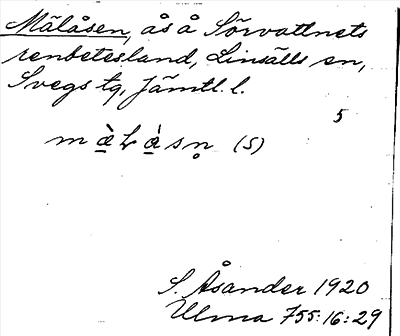 Målåsen, ås å Sörvattnets
renbetesland, Linsälls sn,
Svegs tg, Jämtl. l.
5
(S)
S. Åsander 1920
Ulma 755:16:29